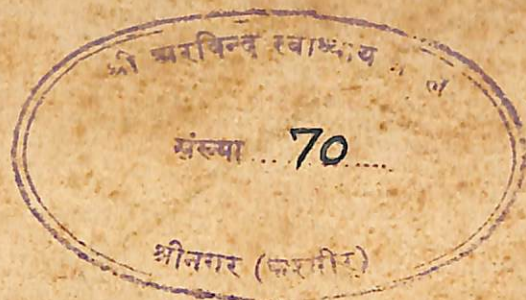 श्री अरविन्द स्वाध्याय
संख्या ... 70 .....
श्रीनगर (कश्मीर)